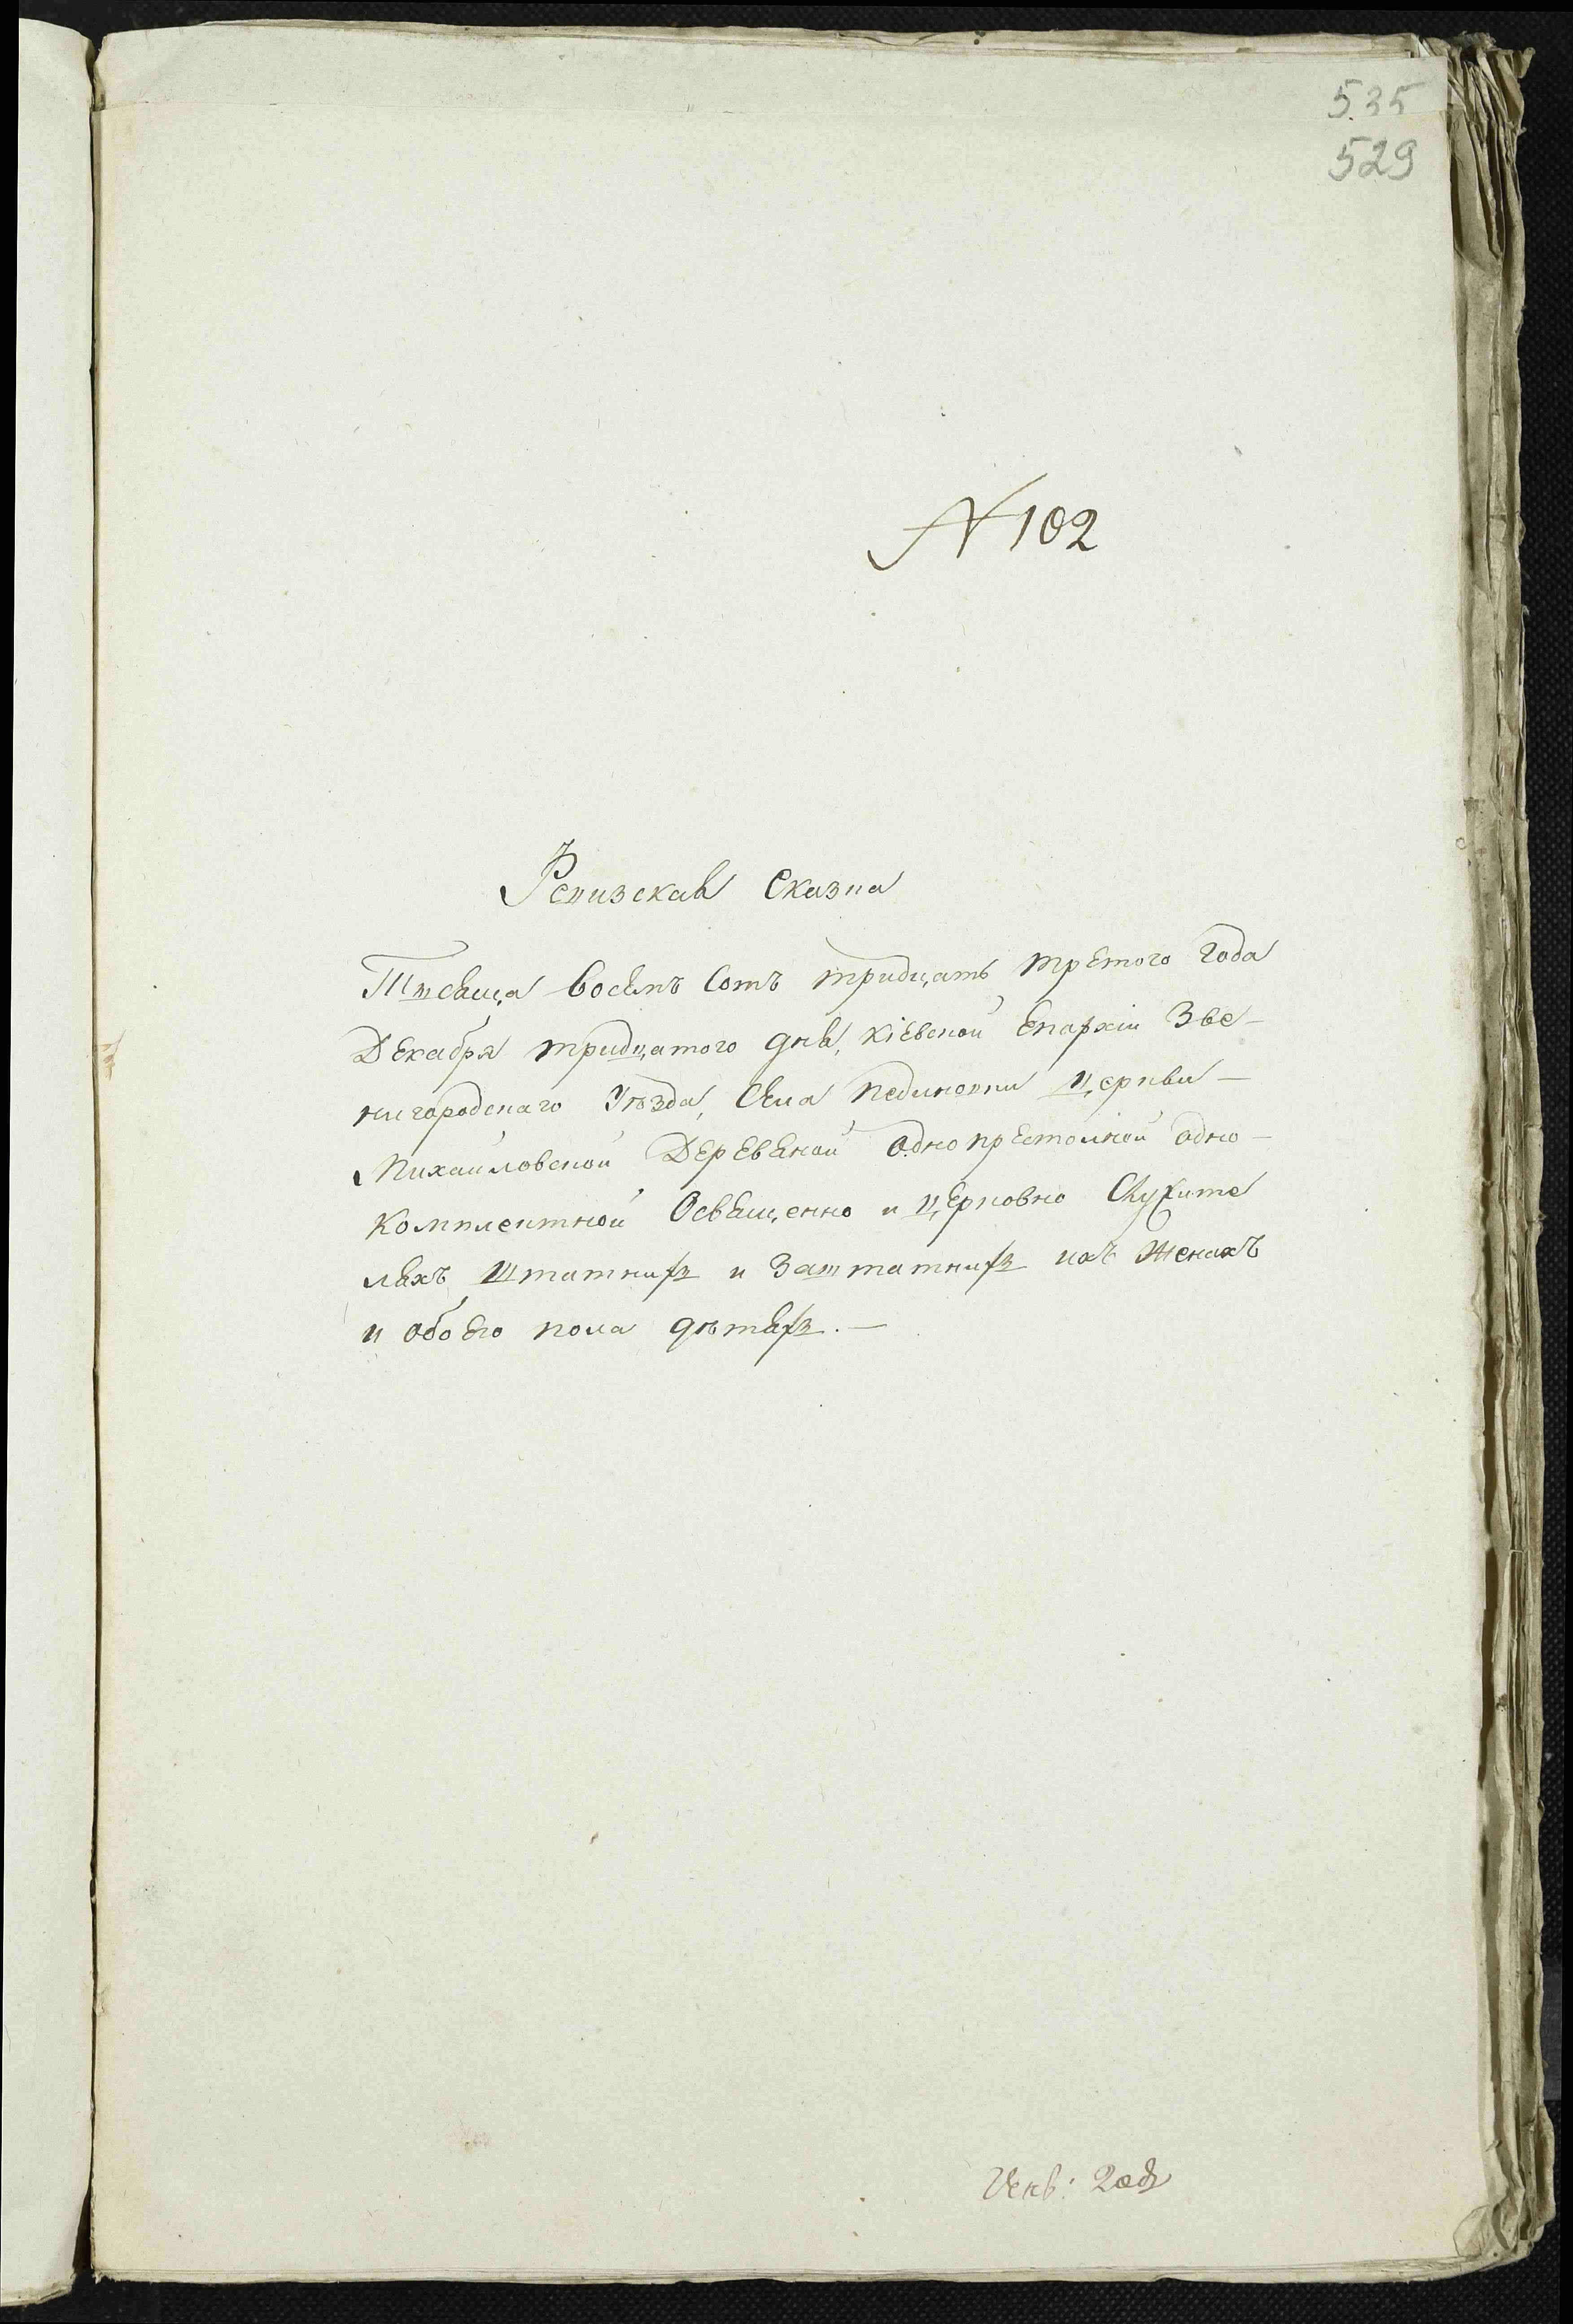 535
529
N 102
Ревизская Сказка
Тысяща восемъ сотъ тридцать третого года
Декабря тридцатого дня, кіевской Епархіи Зве-
нигородскаго Уѣзда, Села Пединовки церкви -
Михайловской Деревяной однопрестолной одно-
комплектной О священно и церковно Служите
ляхъ штатних и заштатних ихъ женахъ
и обоего пола дѣтях. -